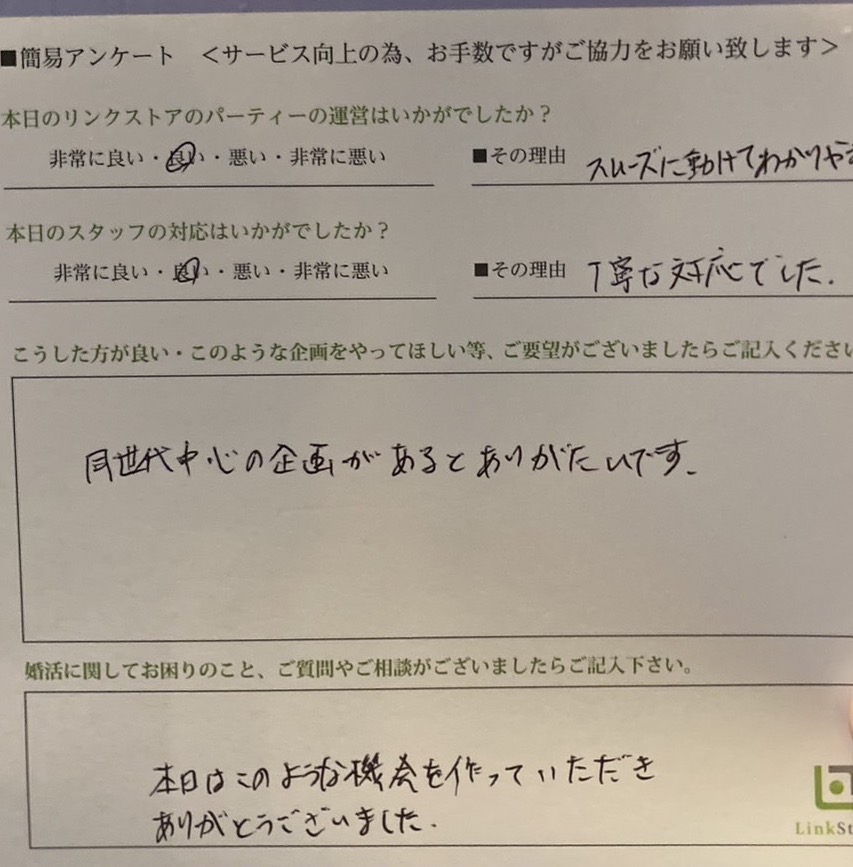 ■簡易アンケート <サービス向上の為、お手数ですがご協力をお願い致します>
本日のリンクストアのパーティーの運営はいかがでしたか？
非常に良い・良い・悪い・非常に悪い ■その理由 スムーズに動けてわかりや
本日のスタッフの対応はいかがでしたか？
非常に良い・良い・悪い・非常に悪い ■その理由 丁寧な対応でした.
こうした方が良い・このような企画をやってほしい等、ご要望がございましたらご記入ください
同世代中心の企画があるとありがたいです.
婚活に関してお困りのこと、ご質問やご相談がございましたらご記入下さい。
本日はこのような機会を作っていただき
ありがとうございました.
LinkSt